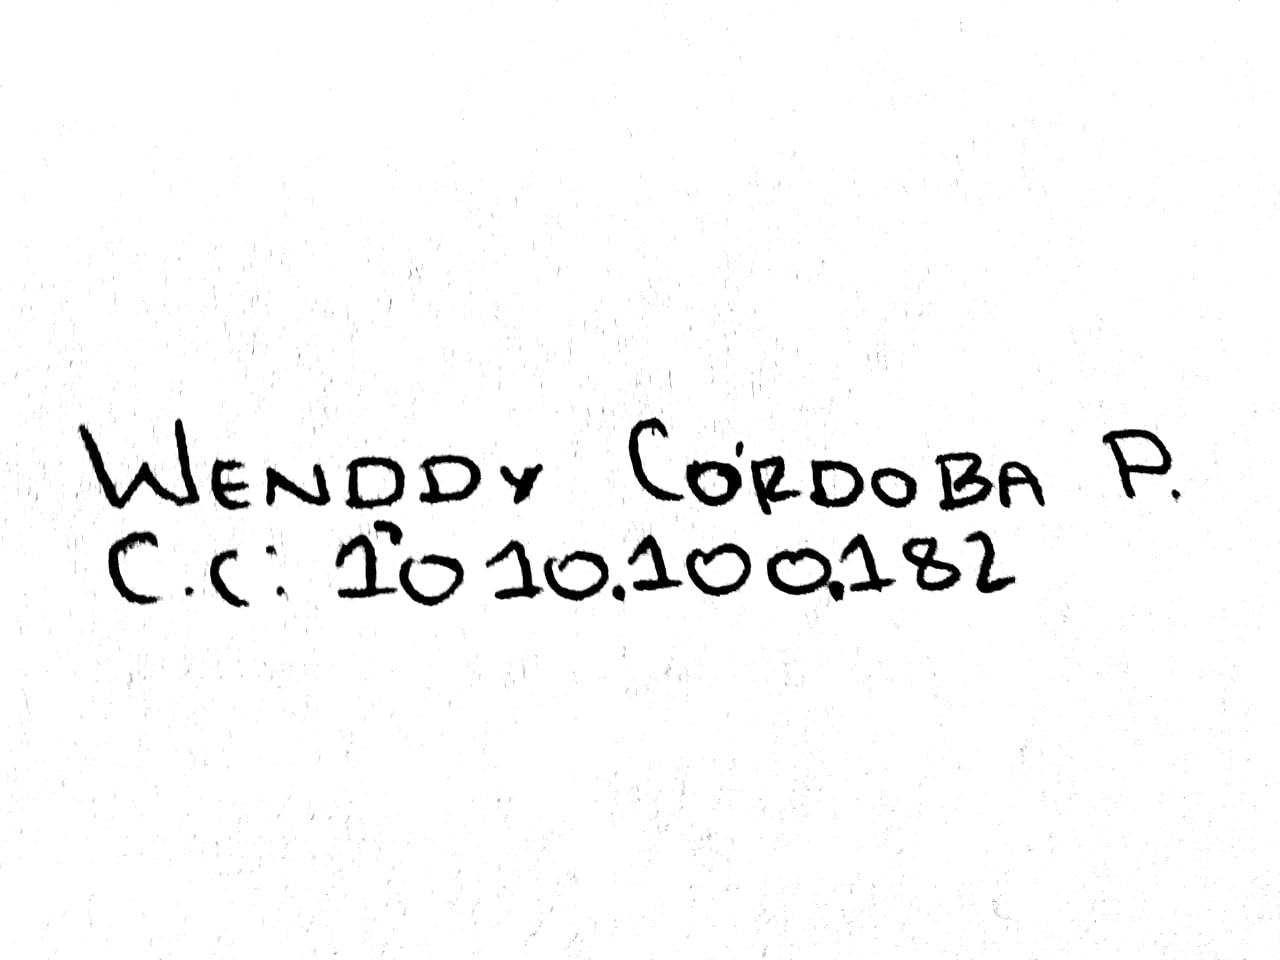 WENDDY CÓRDOBA P.
C.C: 1'010.100.182